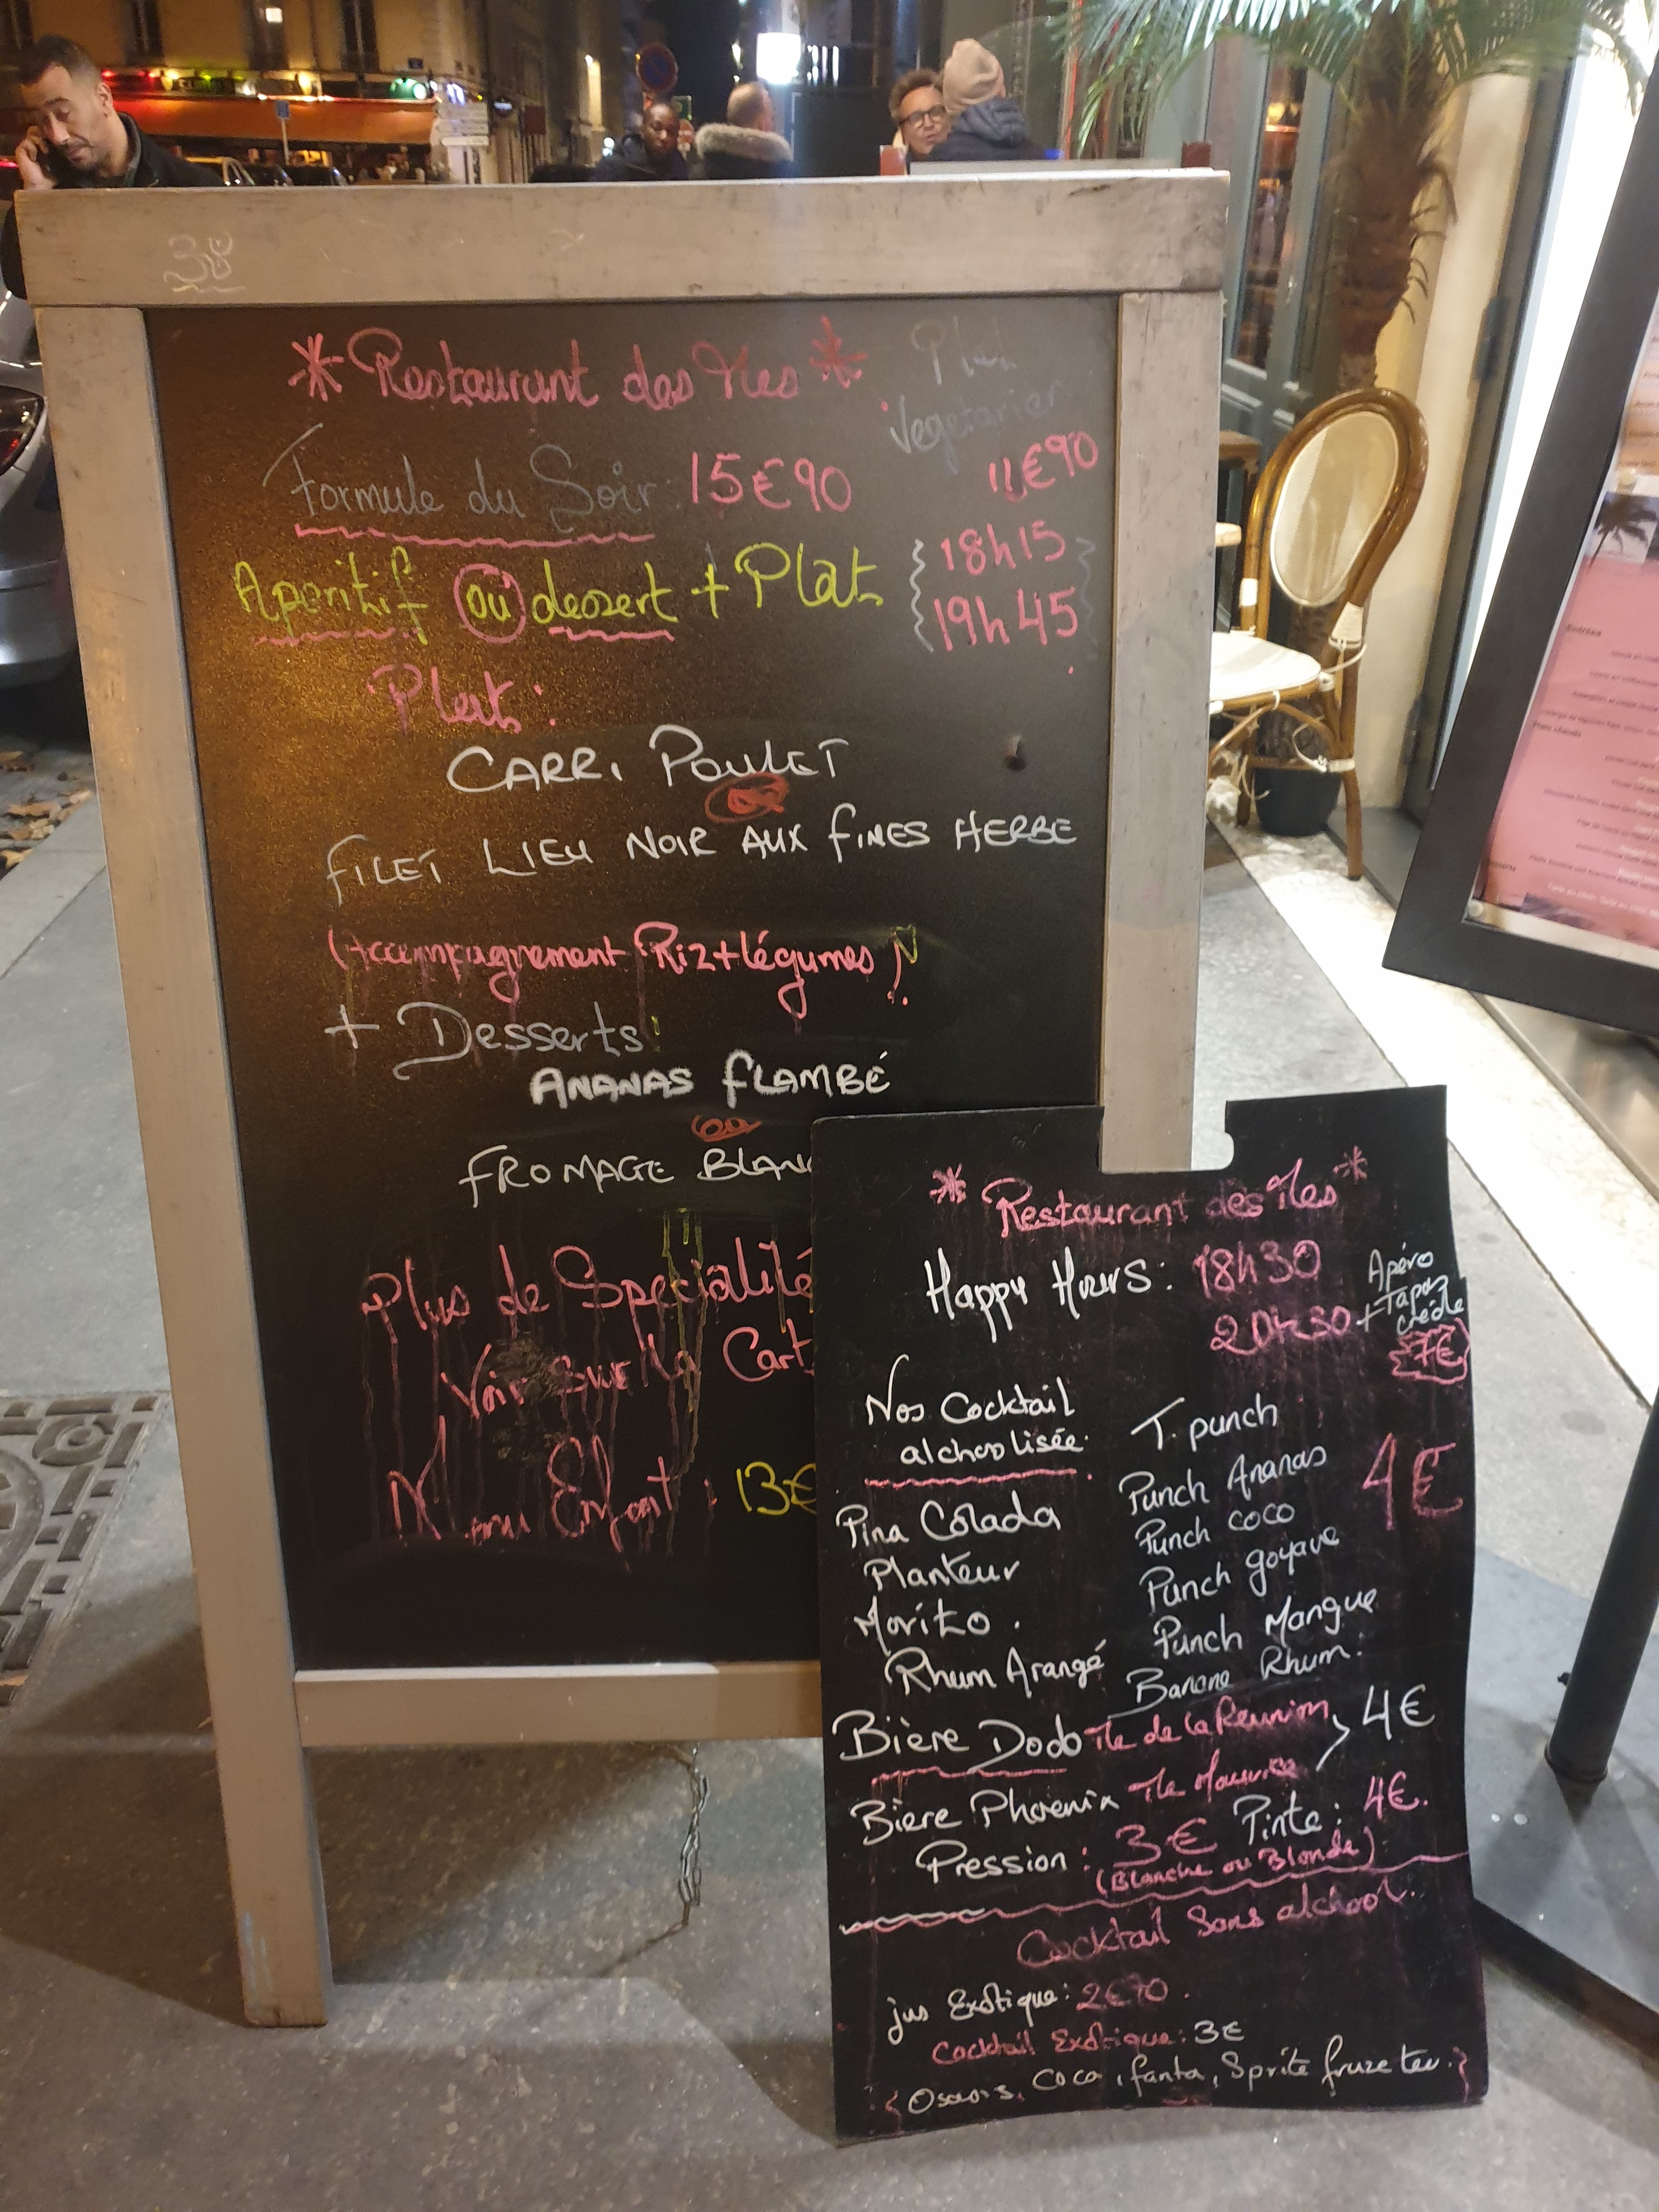 * Restaurant des Îles *
Plat
Vegetarien
11€90
Formule du Soir: 15€90
Aperitif ou dessert + Plat
18h15
19h45
Plat:
CARRI POULET
ou
FILET LIEU NOIR AUX FINES HERBE
(Accompagnement Riz+légumes)
+ Desserts
ANANAS FLAMBÉ
ou
FROMAGE BLANC
Plus de Specialité
Voir sur la Cart
Menu Enfant: 13€
* Restaurant des Îles *
Happy Hours: 18h30
20h30
Apéro
+ Tapas
créole
7€
Nos Cocktail
alchoolisée
Pina Colada
Planteur
Morito
Rhum Arangé
T. punch
Punch Ananas
Punch coco
Punch goyave
Punch Mangue
Banane Rhum.
4€
Bière Dodo Île de la Reunion
Bière Phoenix Île Maurice
4€
Pression: 3€ Pinte: 4€.
(Blanche ou Blonde)
Cocktail Sans alchool.
jus Exotique: 2€70.
Cocktail Exotique: 3€
Coca, fanta, Sprite fruze tea.
Entrées
Plats chauds
Desserts